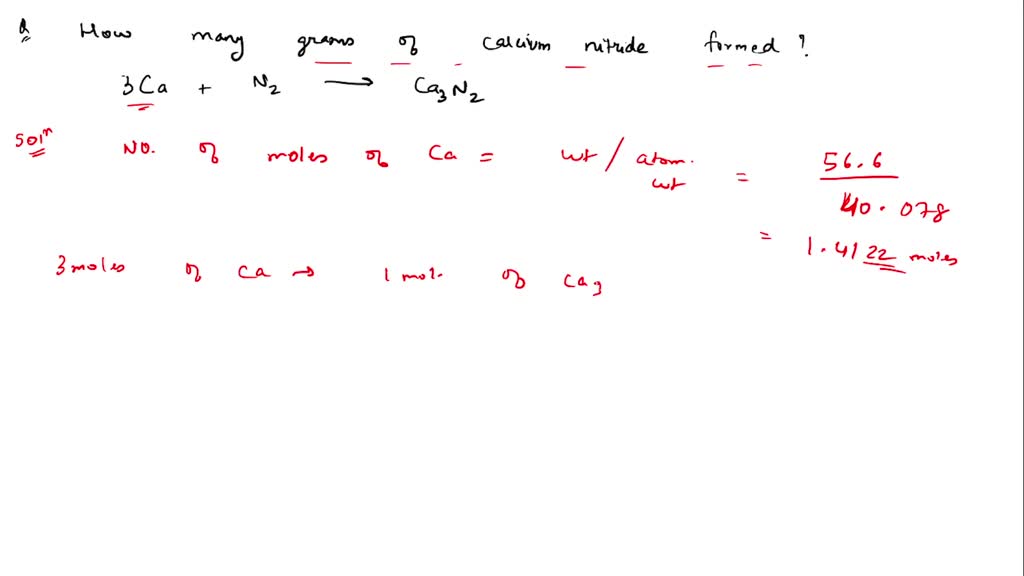 Q How many grams of calcium nitride formed?
3Ca + N2 → Ca3N2
Solⁿ No. of moles of Ca = wt / atom. wt = 56.6 / 40.078
= 1.4122 moles
3 moles of Ca → 1 mol. of Ca3